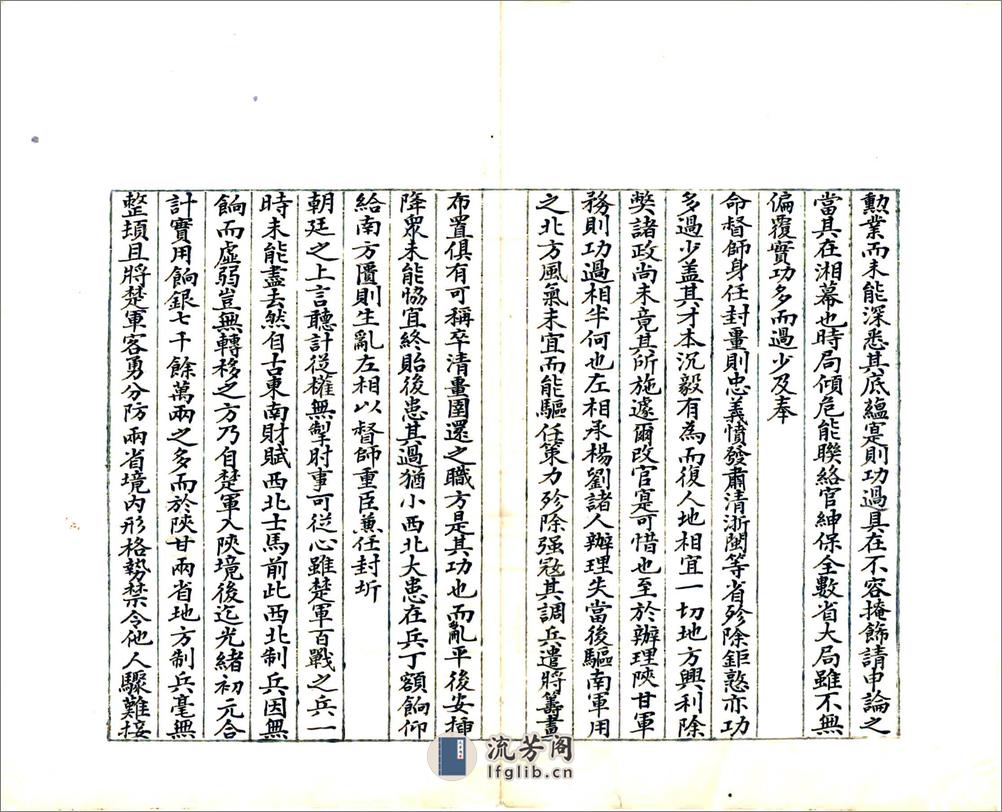 勲業而未能深悉其底蘊寔則功過具在不容掩飾請申論之
當其在湘幕也時局傾危能聯絡官紳保全數省大局雖不無
偏覆實功多而過少及奉
命督師身任封畺則忠義憤發肅清浙閩等省殄除鉅憝亦功
多過少盖其才本沉毅有為而復人地相宜一切地方興利除
獘諸政尚未竟其所施遽爾改官寔可惜也至於辦理陝甘軍
務則功過相半何也左相承楊劉諸人辦理失當後驅南軍用
之北方風氣未宜而能驅任策力殄除强寇其調兵遣將籌畫
布置俱有可稱卒清畫圉還之職方是其功也而亂平後安揷
降衆未能恊宜終貽後患其過猶小西北大患在兵丁額餉仰
給南方匱則生亂左相以督師重臣兼任封圻
朝廷之上言聽計從權無掣肘事可從心雖楚軍百戰之兵一
時未能盡去然自古東南財賦西北士馬前此西北制兵因無
餉而虛弱豈無轉移之方乃自楚軍入陝境後迄光緒初元合
計實用餉銀七千餘萬兩之多而於陝甘兩省地方制兵毫無
整頓且將楚軍客勇分防兩省境内形格勢禁令他人驟難接
流芳阁
lfglib.cn